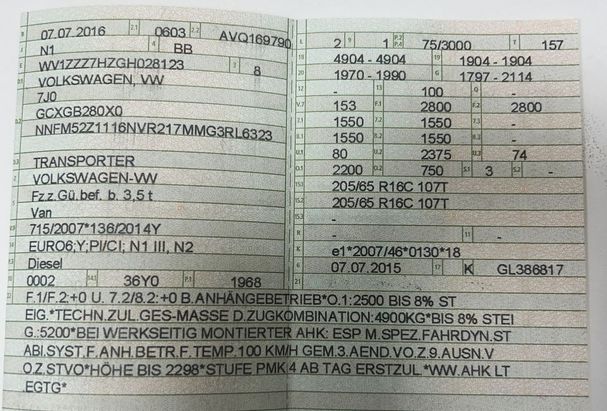 B 07.07.2016 2.1 0603 2.2 AVQ169790
J N1 4 BB
E WV1ZZZ7HZGH028123 3 8
D.1 VOLKSWAGEN, VW
7J0
D.2 GCXGB280X0
NNFM52Z1116NVR217MMG3RL6323
D.3 TRANSPORTER
2 VOLKSWAGEN-VW
5 Fz.z.Gü.bef. b. 3,5 t
Van
V.9 715/2007*136/2014Y
14 EURO6;Y;PI/CI; N1 III, N2
P.3 Diesel
10 0002 14.1 36Y0 P.1 1968
L 2 9 1 P.2 P.4 75/3000 T 157
18 4904 - 4904 19 1904 - 1904
20 1970 - 1990 G 1797 - 2114
12 - 13 100 Q -
V.7 153 F.1 2800 F.2 2800
7.1 1550 7.2 1550 7.3 -
8.1 1550 8.2 1550 8.3 -
U.1 80 U.2 2375 U.3 74
O.1 2200 O.2 750 S.1 3 S.2 -
15.1 205/65 R16C 107T
15.2 205/65 R16C 107T
15.3 -
R - 11 -
K e1*2007/46*0130*18
6 07.07.2015 17 K 16 GL386817
21
22 F.1/F.2:+0 U. 7.2/8.2:+0 B.ANHÄNGEBETRIEB*O.1:2500 BIS 8% ST
EIG.*TECHN.ZUL.GES-MASSE D.ZUGKOMBINATION:4900KG*BIS 8% STEI
G.:5200*BEI WERKSEITIG MONTIERTER AHK: ESP M.SPEZ.FAHRDYN.ST
ABI.SYST.F.ANH.BETR.F.TEMP.100 KM/H GEM.3.AEND.VO.Z.9.AUSN.V
O.Z.STVO*HÖHE BIS 2298*STUFE PMK 4 AB TAG ERSTZUL.*WW.AHK LT
EGTG*